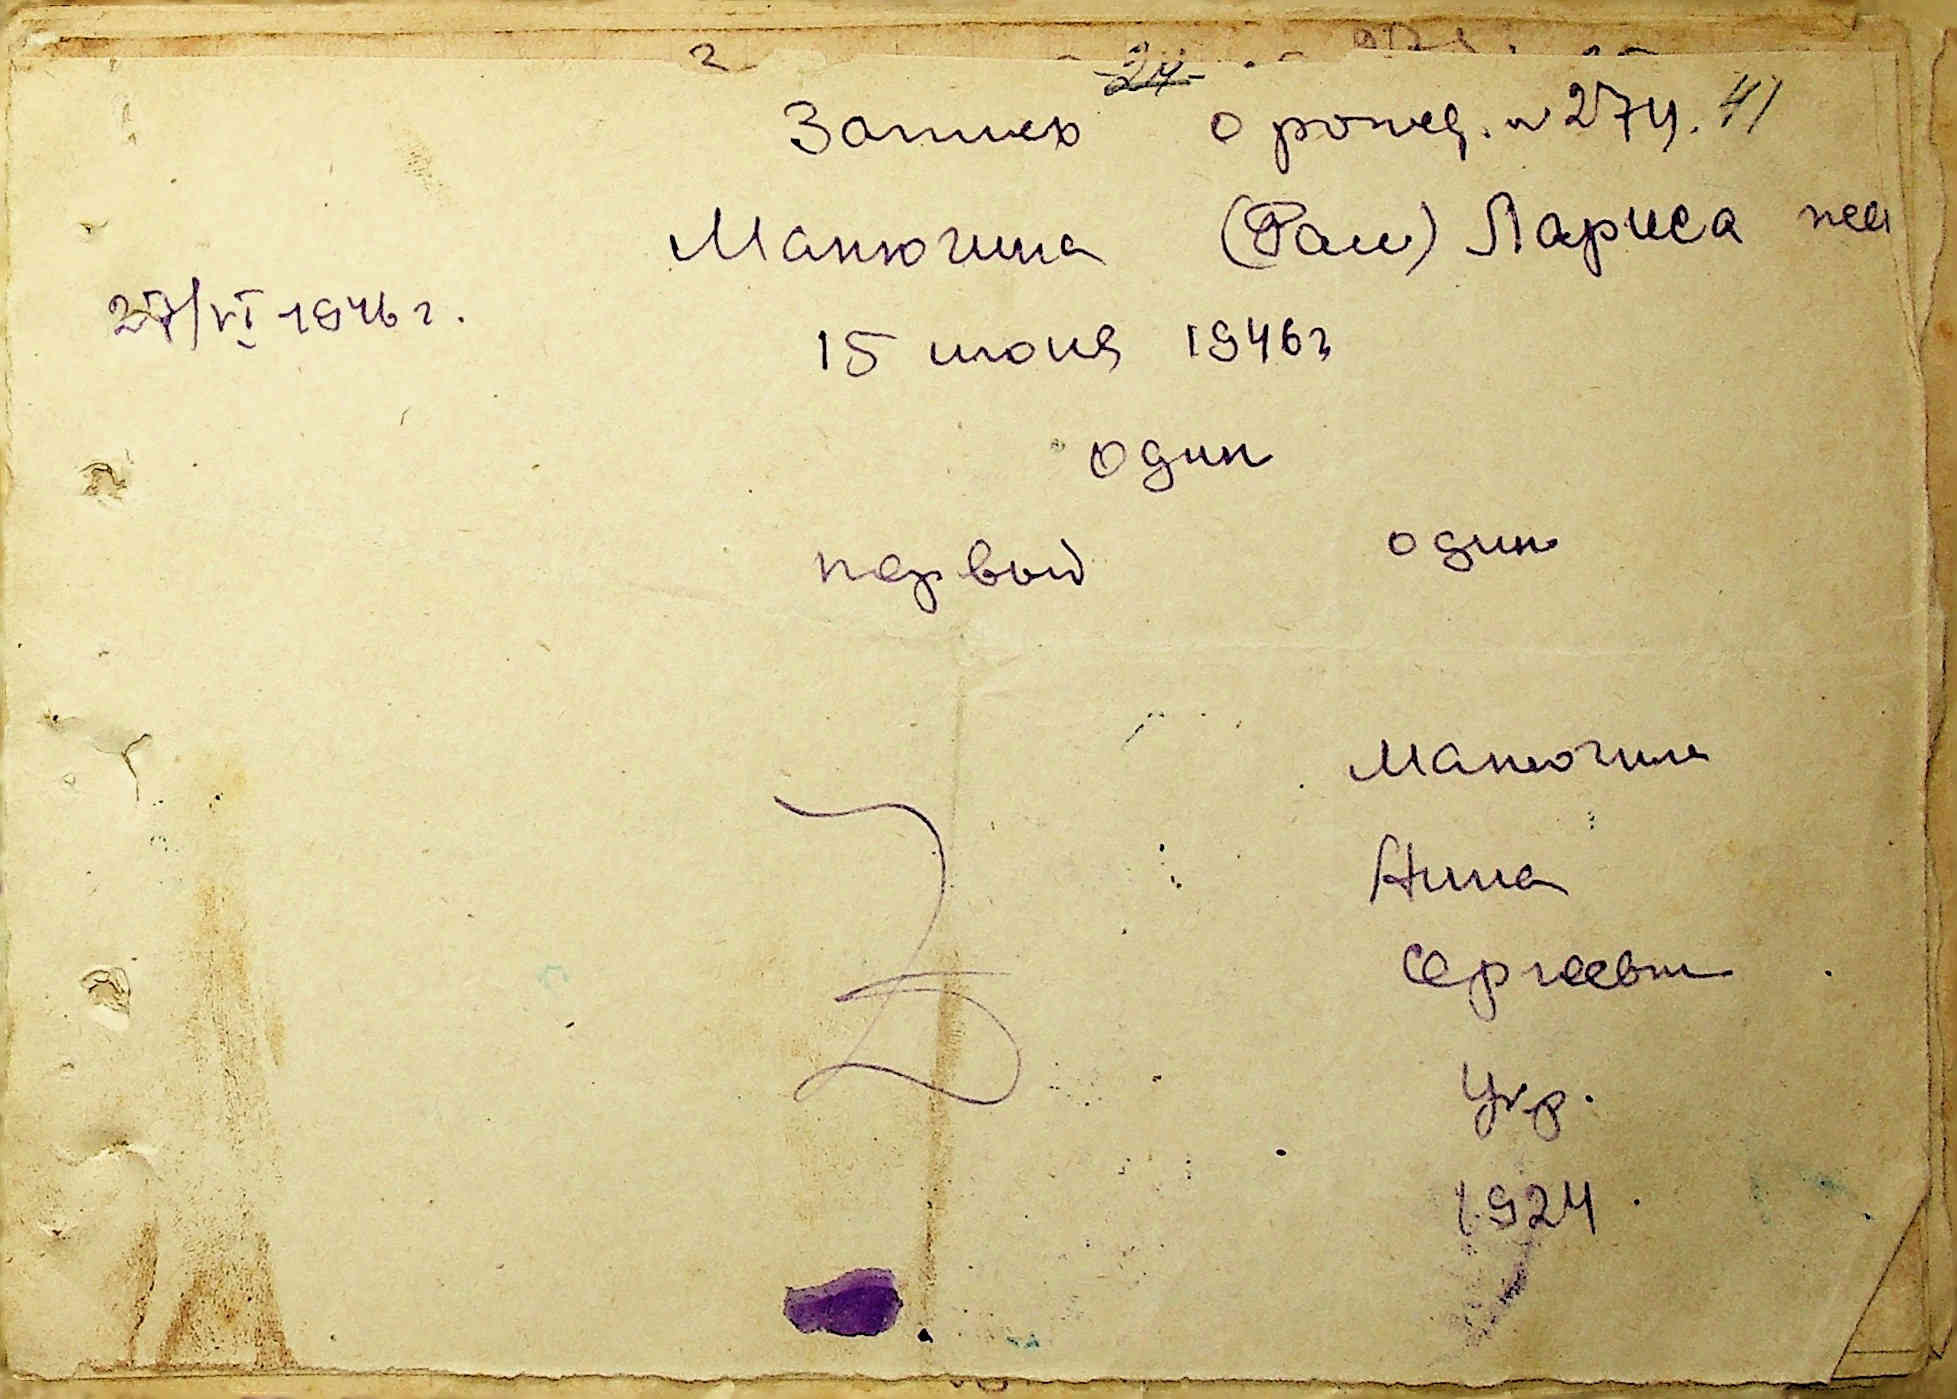 24
Запись о рожд. № 274. 41
Манюгина (Раи) Лариса жен
27/VI 1946 г.
15 июня 1946 г
один
первый один
Манюгина
Анна
Сергеевн
Укр.
1924